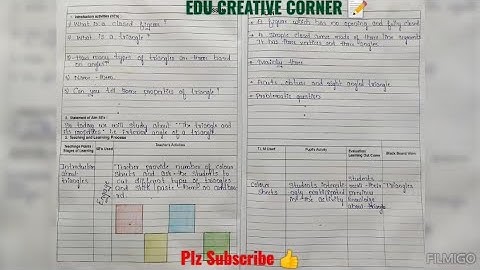 EDU CREATIVE CORNER 📝
1. Introductory activities
What is a closed figure?
2) What is a triangle?
3) How many types of triangles are there based
on angles?
4) Name them.
5) Can you tell some properties of triangle?
2. Statement of Aim
So today we will study about "The triangle and
its properties" i.e. interior angle of a triangle.
3. Teaching and Learning Process
Teaching Points/
Stages of Learning
Teacher's Activities
Introduction
about
triangles
Teacher provide number of colour
sheets and ask the students to
cut different types of triangles
and stick/paste them on cardboa
rd.
A figure which has no opening and fully closed
A simple closed curve made of three line segments.
It has three vertices and three angles.
Mainly three
Acute, obtuse and right angled triangle
Problematic question
T.L.M Used
Pupil's Activity
Evaluation/
Learning Out Come
Black Board Work
Colour
sheets
Students
participated
in the activity
Students
previous
knowledge
about triangle
Triangles
Plz Subscribe 👍
FILMIGO